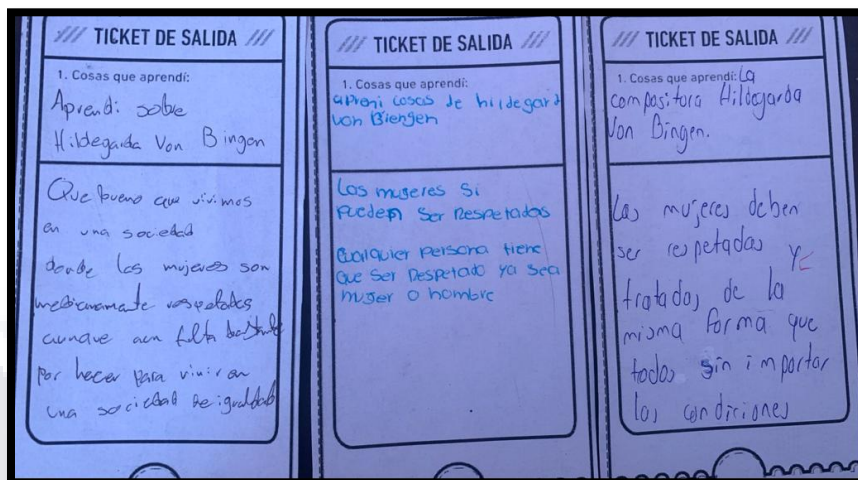 /// TICKET DE SALIDA ///
1. Cosas que aprendí:
Aprendi sobre
Hildegarda Von Bingen
Que bueno que vivimos
en una sociedad
donde las mujeres son
medianamente respetadas
aunque aun falta bastante
por hacer para vivir en
una sociedad de igualdad
/// TICKET DE SALIDA ///
1. Cosas que aprendí:
apreni cosas de hildegard
von Biengen
Las mujeres si
pueden ser Respetadas
Cualquier persona tiene
que ser Respetado ya sea
mujer o hombre
/// TICKET DE SALIDA ///
1. Cosas que aprendí: La
compositora Hildegarda
Von Bingen.
Las mujeres deben
ser respetadas y
tratadas de la
misma forma que
todos sin importar
las condiciones